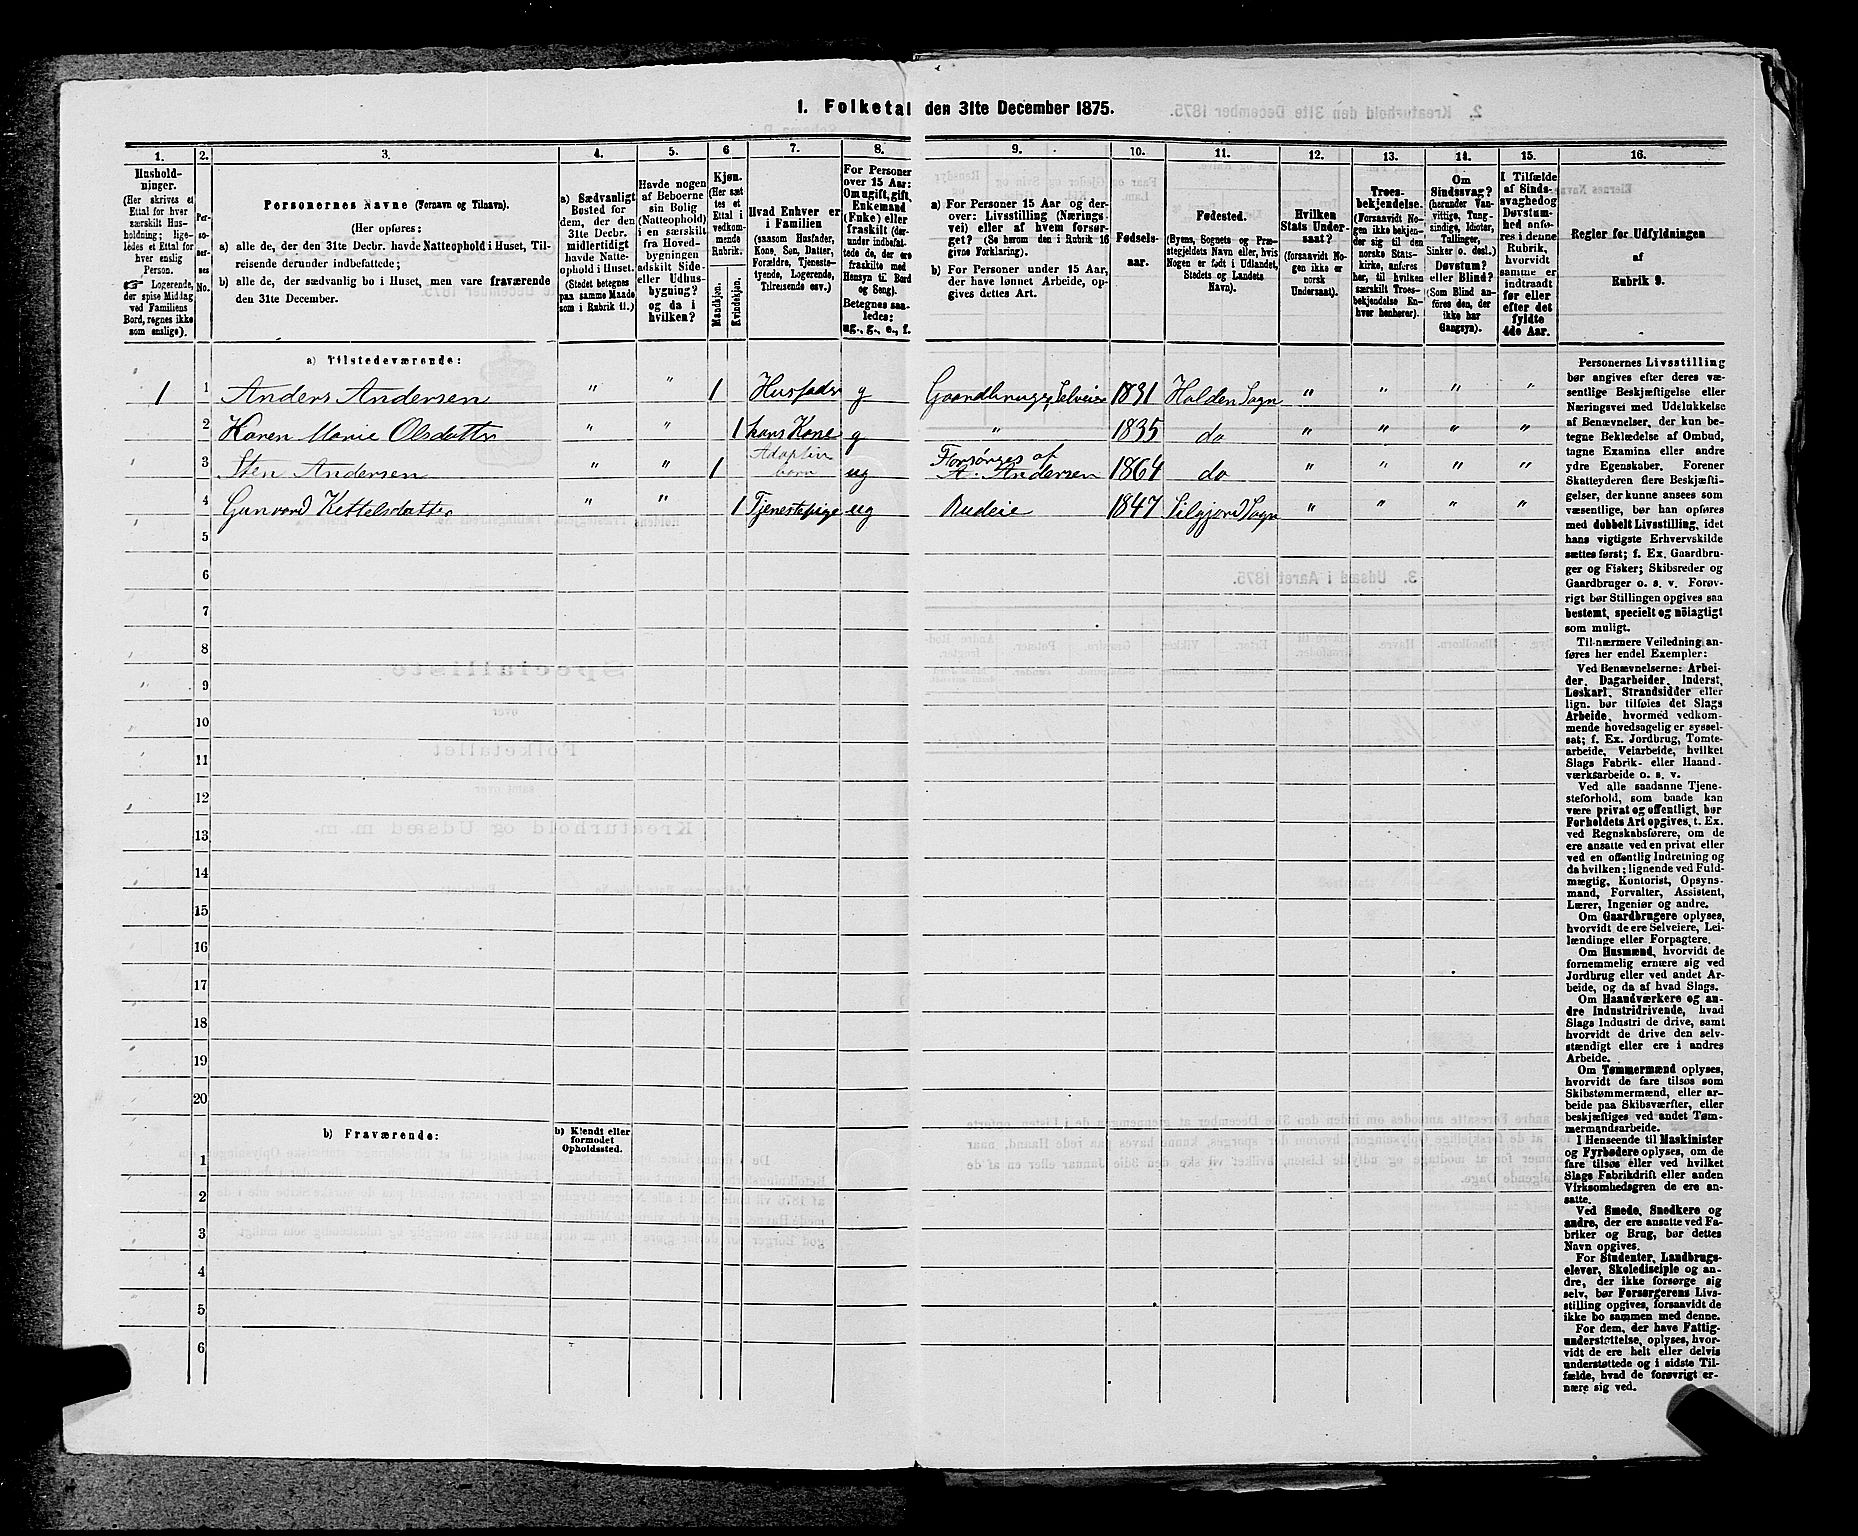 1. Folketal den 31te December 1875.
1. 2. 3. 4. 5. 6 7. 8. 9. 10. 11. 12. 13. 14. 15. 16.
Hushold-
ninger.
(Her skrives et
Ettal for hver
særskilt Hus-
holdning; lige-
ledes et Ettal for
hver enslig
Person.
Logerende,
der spise Middag
ved Familiens
Bord, regnes ikke
som enslige).
Per-
so-
ner-
nes
No.
Personernes Navne (Fornavn og Tilnavn).
(Her opføres:
a) alle de, der den 31te Decbr. havde Natteophold i Huset, Til-
reisende derunder indbefattede;
b) alle de, der sædvanlig bo i Huset, men vare fraværende
den 31te December.
a) Sædvanligt
Bosted for
dem, der den
31te Decbr.
midlertidigt
havde Natte-
ophold i Huset.
(Stedet betegnes
paa samme Maade
som i Rubrik 11.)
Havde nogen
af Beboerne
sin Bolig
(Natteophold)
i en særskilt
fra Hoved-
bygningen
adskilt Side-
eller Udhus-
bygning?
og da i
hvilken?
Kjøn.
(Her sæt
tes et
Ettal i
vedkom-
mende
Rubrik.
Mandkjøn.
Kvindekjøn.
Hvad Enhver er
i Familien
(saasom Husfader,
Kone, Søn, Datter,
Forældre, Tjeneste-
tyende, Logerende,
Tilreisende osv.)
For Personer
over 15 Aar:
Om ugift, gift,
Enkemand
(Enke) eller
fraskilt (der-
under indbefat-
tede de, der ere
fraskilte med
Hensyn til Bord
og Seng).
Betegnes saa-
ledes:
ug., g., e., f.
a) For Personer 15 Aar og der-
over: Livsstilling (Nærings-
vei) eller af hvem forsør-
get? (Se herom den i Rubrik 16
givne Forklaring).
b) For Personer under 15 Aar,
der have lønnet Arbeide, op-
gives dettes Art.
Fødsels-
aar.
Fødested.
(Byens, Sognets og Præ-
stegjeldets Navn eller, hvis
Nogen er født i Udlandet,
Stedets og Landets
Navn).
Hvilken
Stats Under-
saat?
(forsaavidt No-
gen ikke er
norsk
Undersaat).
Troes-
bekjendelse.
(Forsaavidt No-
gen ikke bekjen-
der sig til den
norske Stats-
kirke, anføres
her, til hvilken
særskilt Troes-
bekjendelse En-
hver henhører).
Om
Sindssvag?
(herunder Van-
vittige, Tung-
sindige, Idioter,
Tullinger,
Sinker o. desl.).
Døvstum?
eller Blind?
(Som Blind an-
føres den, der
ikke har
Gangsyn).
I Tilfælde
af Sinds-
svaghed og
Døvstum-
hed anfø-
res i denne
Rubrik,
hvorvidt
samme er
indtraadt
før eller
efter det
fyldte
4de Aar.
Regler for Udfyldningen
af
Rubrik 9.
a) Tilstedeværende:
1 1 Anders Andersen " " 1 Husfader g Gaardbruger, Selveier 1831 Holden Sogn " " " "
2 Karen Marie Olsdatter " " 1 hans Kone g " 1835 do " " " "
3 Sten Andersen " " 1 Adoptiv
barn ug Forsørges af
A. Andersen 1864 do " " " "
4 Gunvord Kettelsdatter " " 1 Tjenestepige ug Budeie 1847 Silgjord Sogn " " " "
5
6
7
8
9
10
11
12
13
14
15
16
17
18
19
20
b) Fraværende:
b) Kjendt eller
formodet
Opholdssted.
1
2
3
4
5
6
Personernes Livsstilling
bør angives efter deres væ-
sentlige Beskjæftigelse eller
Næringsvei med Udelukkelse
af Benævnelser, der kun be-
tegne Beklædelse af Ombud,
tagne Examina eller andre
ydre Egenskaber. Forener
Skatteyderen flere Beskjæfti-
gelser, der kunne ansees som
væsentlige, bør han opføres
med dobbelt Livsstilling, idet
hans vigtigste Erhvervskilde
sættes først; f. Ex. Gaardbru-
ger og Fisker; Skibsreder og
Gaardbruger o. s. v. Forøv-
rigt bør Stillingen opgives saa
bestemt, specielt og nöiagtigt
som muligt.
Til nærmere Veiledning an-
føres her endel Exempler:
Ved Benævnelserne: Arbei-
der, Dagarbeider, Inderst,
Løskarl, Strandsidder eller
lign. bør tilføies det Slags
Arbeide, hvormed vedkom-
mende hovedsagelig er syssel-
sat; f. Ex. Jordbrug, Tomte-
arbeide, Veiarbeide, hvilket
Slags Fabrik- eller Haand-
værksarbeide o. s. v.
Ved alle saadanne Tjene-
steforhold, som baade kan
være privat og offentligt, bør
Forholdets Art opgives, t. Ex.
ved Regnskabsførere, om de
ere ansatte ved en privat eller
ved en offentlig Indretning og
da hvilken; lignende ved Fuld-
mægtig, Kontorist, Opsyns-
mand, Forvalter, Assistent,
Lærer, Ingeniør og andre.
Om Gaardbrugere oplyses,
hvorvidt de ere Selveiere, Lei-
lændinge eller Forpagtere.
Om Husmænd, hvorvidt de
fornemmelig ernære sig ved
Jordbrug eller ved andet Ar-
beide, og da af hvad Slags.
Om Haandværkere og an-
dre Industridrivende, hvad
Slags Industri de drive, samt
hvorvidt de drive den selv-
stændigt eller ere i andres
Arbeide.
Om Tømmermænd oplyses,
hvorvidt de fare tilsøs som
Skibstømmermænd, eller ar-
beide paa Skibsværfter, eller
beskjæftiges ved andet Tøm-
mermandsarbeide.
I Henseende til Maskinister
og Fyrbødere oplyses, om de
fare tilsøs eller ved hvilket
Slags Fabrikdrift eller anden
Virksomhedsgren de ere an-
satte.
Ved Smede, Snedkere og
andre, der ere ansatte ved Fa-
briker og Brug, bør dettes
Navn opgives.
For Studenter, Landbrugs-
elever, Skoledisciple og an-
dre, der ikke forsørge sig
selv, bør Forsørgerens Livs-
stilling opgives, forsaavidt de
ikke bo sammen med denne.
For dem, der have Fattig-
understøttelse, oplyses, hvor-
vidt de ere helt eller delvis
understøttede og i sidste Til-
fælde, hvad de forøvrigt er-
nære sig ved.